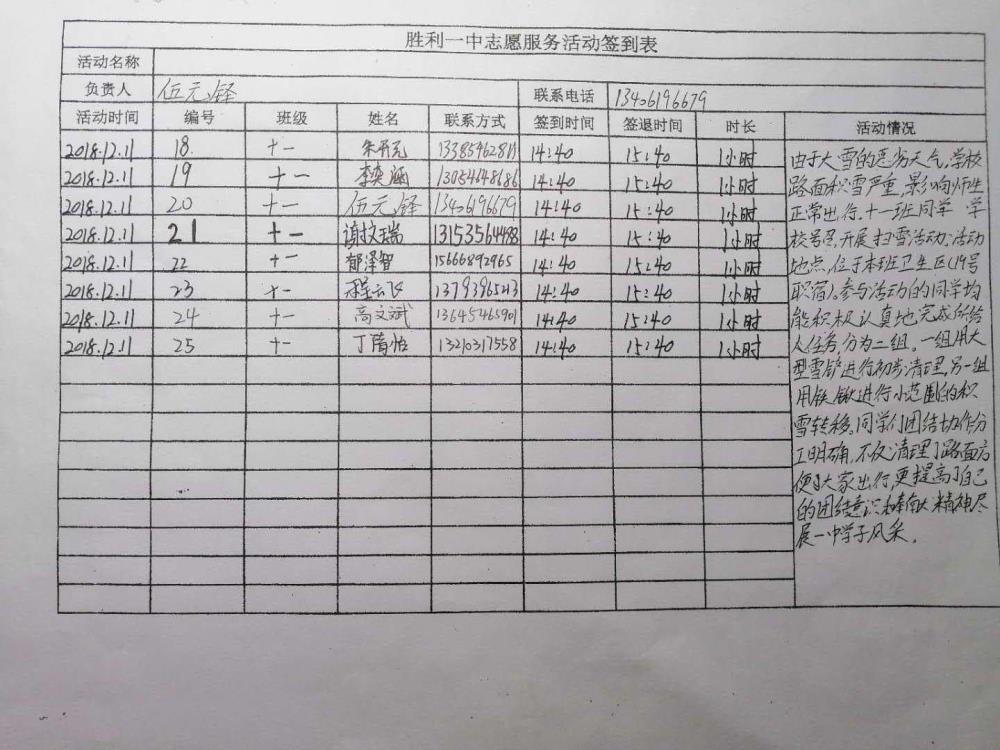 胜利一中志愿服务活动签到表
活动名称
负责人 伍元铎 联系电话 13406196679
活动时间 编号 班级 姓名 联系方式 签到时间 签退时间 时长 活动情况
2018.12.11 18. 十一 朱开元 13385462811 14:40 15:40 1小时
2018.12.11 19 十一 李奕涵 13054648686 14:40 15:40 1小时
2018.12.11 20 十一 伍元铎 13406196679 14:40 15:40 1小时
2018.12.11 21 十一 谢揆瑞 13153564488 14:40 15:40 1小时
2018.12.11 22 十一 郁泽智 15666892965 14:40 15:40 1小时
2018.12.11 23 十一 14:40 15:40 1小时
2018.12.11 24 十一 高文斌 13645465901 14:40 15:40 1小时
2018.12.11 25 十一 丁蔼怡 13210317558 14:40 15:40 1小时
由于大雪的恶劣天气,学校
路面积雪严重,影响师生
正常出行.十一班同学 学
校号召,开展扫雪活动;活动
地点,位于本班卫生区(19号
职宿).参与活动的同学均
能积极认真地完成所给
任务,分为二组。一组用大
型雪铲进行初步清理,另一组
用铁锹进行小范围的积
雪转移。同学们团结协作分
工明确,不仅清理了路面方
便了大家出行,更提高了自己
的团结意识和奉献精神尽
展一中学子风采。